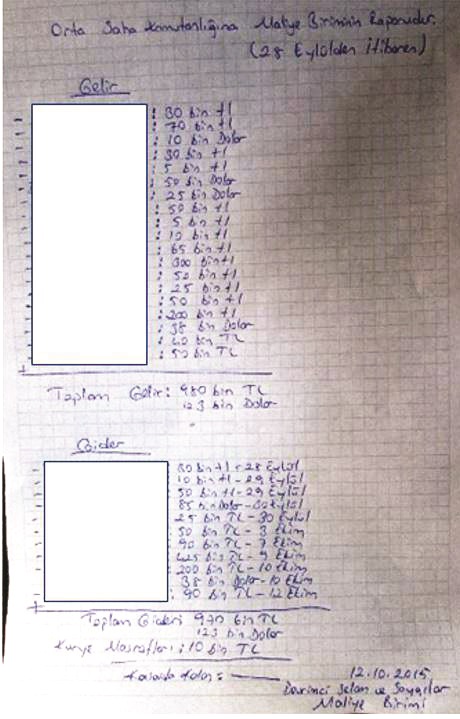 Orta Saha Komutanlığına Maliye Biriminin Raporudur.
(28 Eylülden İtibaren)
Gelir
: 30 bin tl
: 70 bin tl
: 10 bin Dolar
: 30 bin tl
: 5 bin tl
: 50 bin Dolar
: 25 bin Dolar
: 50 bin tl
: 5 bin tl
: 10 bin tl
: 65 bin tl
: 300 bin tl
: 50 bin tl
: 25 bin tl
: 50 bin tl
: 200 bin tl
: 38 bin Dolar
: 40 bin TL
: 50 bin TL
Toplam Gelir: 980 bin TL
123 bin Dolar
Gider
30 bin tl - 28 Eylül
10 bin tl - 29 Eylül
50 bin tl - 29 Eylül
85 bin Dolar - 30 Eylül
25 bin TL - 30 Eylül
50 bin TL - 3 Ekim
90 bin TL - 7 Ekim
425 bin TL - 9 Ekim
200 bin TL - 10 Ekim
38 bin Dolar - 10 Ekim
90 bin TL - 12 Ekim
Toplam Gideri 970 bin TL
123 bin Dolar
Kurye Masrafları : 10 bin TL
Kasada Kalan :
12.10.2015
Devrimci Selam ve Saygılar
Maliye Birimi